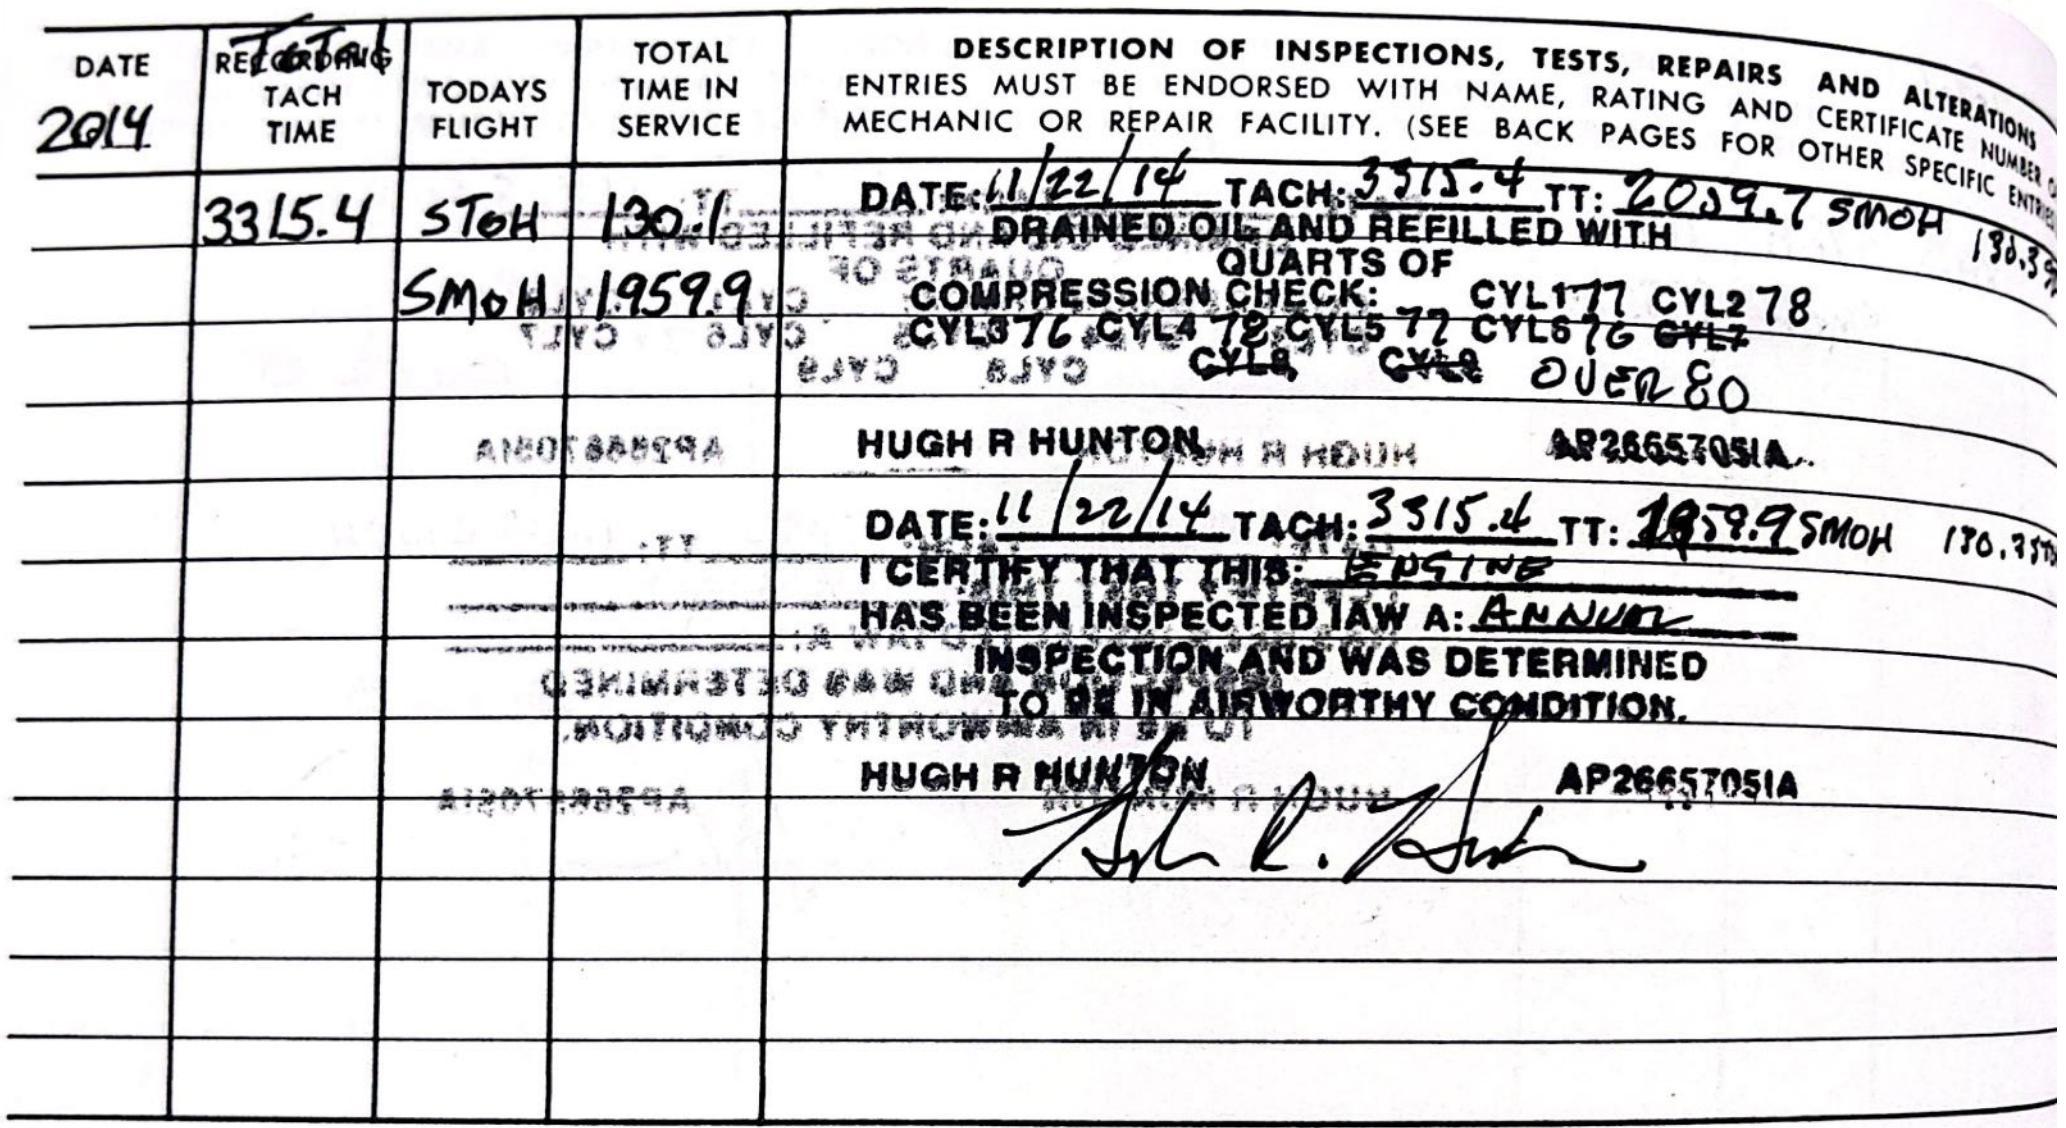 DATE
2014
Total
RECORDING
TACH
TIME
TODAYS
FLIGHT
TOTAL
TIME IN
SERVICE
DESCRIPTION OF INSPECTIONS, TESTS, REPAIRS AND ALTERATIONS
ENTRIES MUST BE ENDORSED WITH NAME, RATING AND CERTIFICATE NUMBER
MECHANIC OR REPAIR FACILITY. (SEE BACK PAGES FOR OTHER SPECIFIC
3315.4 STOH 130.1
SMOH 1959.9
DATE: 11/22/14 TACH: 3315.4 TT: 2059.7 SMOH
DRAINED OIL AND REFILLED WITH
QUARTS OF
COMPRESSION CHECK: CYL1 77 CYL2 78
CYL3 76 CYL4 78 CYL5 77 CYL6 76 CYL7
CYL8 CYL9 OVER 80
HUGH R HUNTON AP2665705IA
DATE: 11/22/14 TACH: 3315.4 TT: 1959.9 SMOH
I CERTIFY THAT THIS: ENGINE
HAS BEEN INSPECTED IAW A: ANNUAL
INSPECTION AND WAS DETERMINED
TO BE IN AIRWORTHY CONDITION.
HUGH R HUNTON AP2665705IA